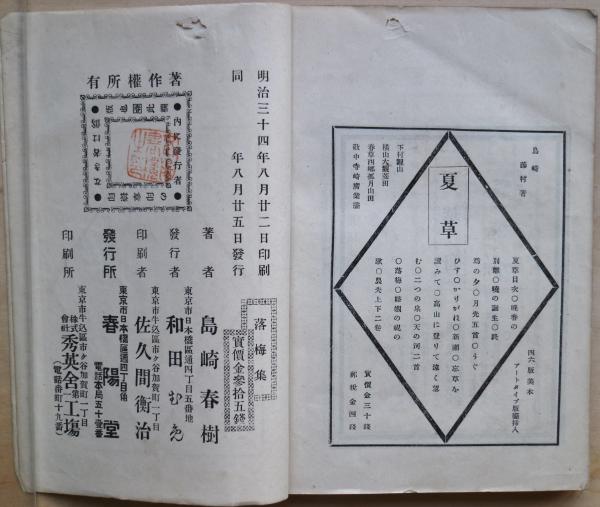 島崎藤村著
夏草
四六版美本
アートタイプ版挿入
下村觀山
横山大觀
夏草目次○晩春の
別離○曉の誕生○終
焉の夕○月光五首○うぐ
ひす○かりがね○新潮○忘草を
よみて○高山に登りて遠く望
む○二つの泉○天の河二首
○落梅○
歌○農夫上下二卷
實價金三十錢
郵税金四錢
著作權所有
明治三十四年八月廿二日印刷
同年八月廿五日發行
落梅集
實價金參拾五錢
著者
島崎春樹
東京市日本橋區通四丁目五番地
發行者
和田むめ
東京市牛込區市ケ谷加賀町一丁目
印刷者
佐久間衡治
東京市日本橋區通四丁目角
發行所
春陽堂
電話本局五十壹番
東京市牛込區市ケ谷加賀町一丁目
印刷所
株式會社秀英舍第一工場
(電話番町十九番)